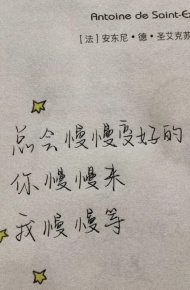 Antoine de Saint-E
[法] 安东尼·德·圣艾克苏
总会慢慢变好的
你慢慢来
我慢慢等